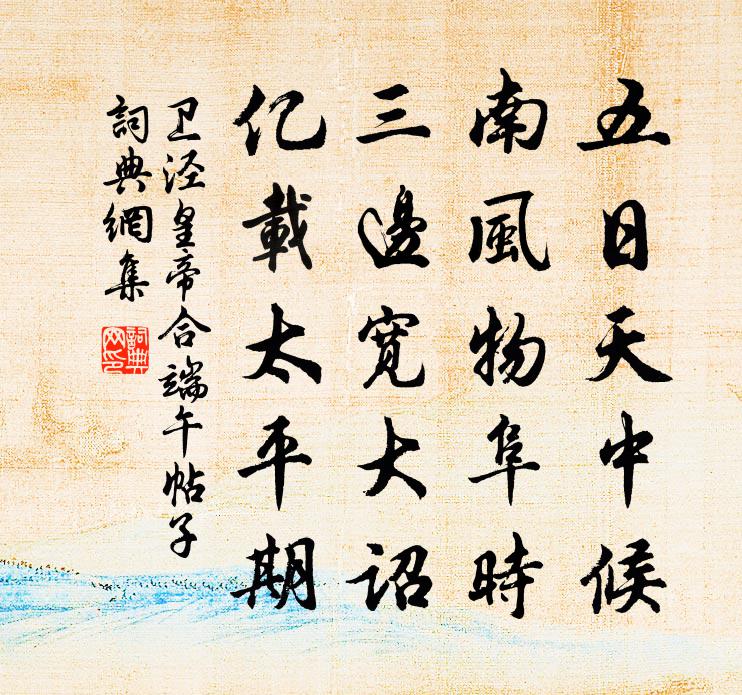 五日天中候
南風物阜時
三邊寬大詔
亿載太平期
卫泾皇帝合端午帖子
詞典網集
詞典
网印